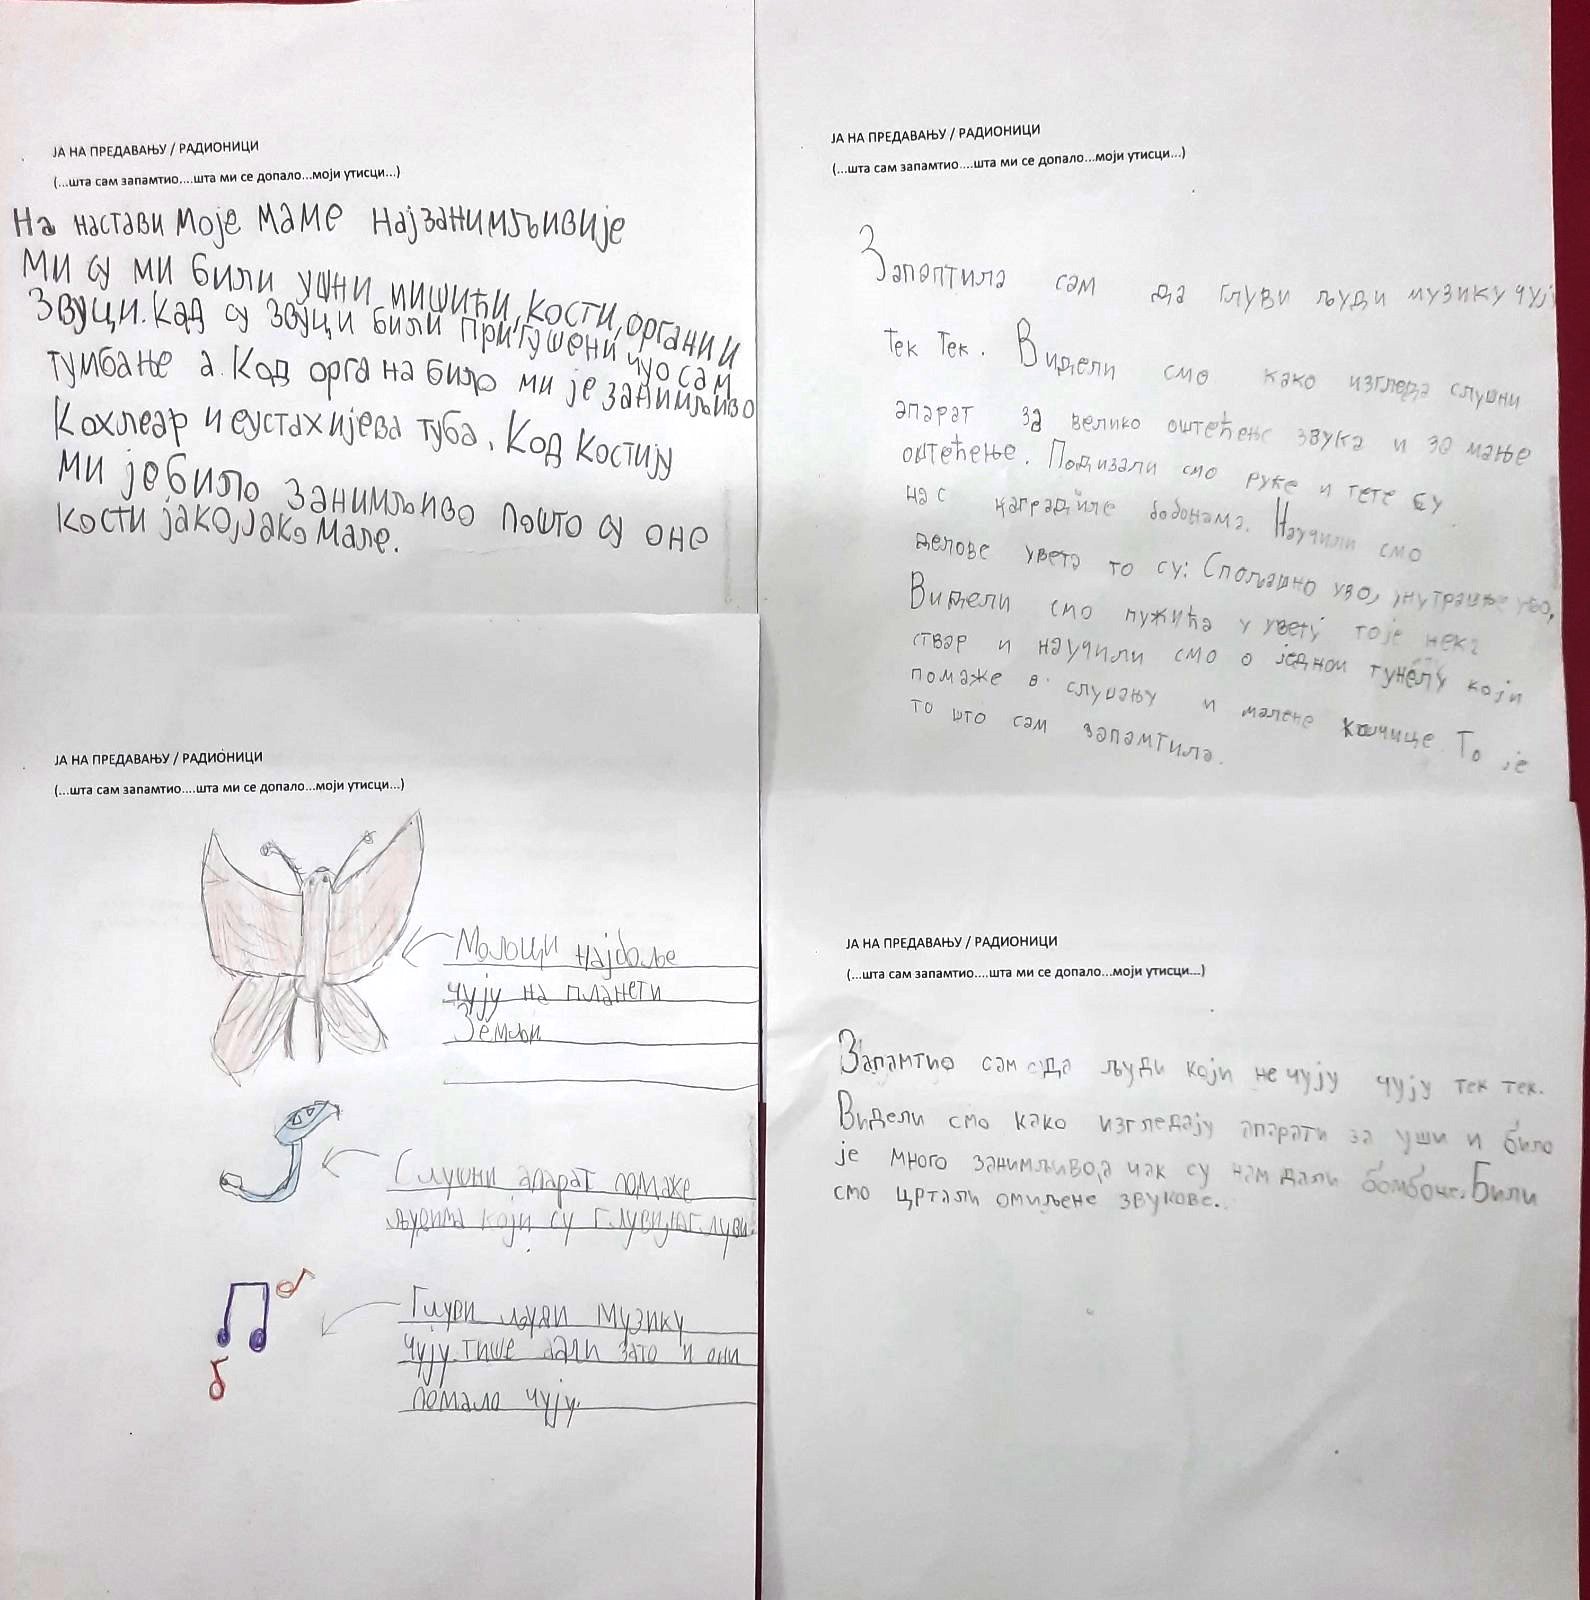 ЈА НА ПРЕДАВАЊУ / РАДИОНИЦИ
(...шта сам запамтио....шта ми се допало...моји утисци...)
На настави моје маме најзанимљивије
ми су ми били ушни мишићи, кости, органи и
звуци. Кад су звуци били пригушени чуо сам
тумбање а. Код органа било ми је занимљиво
Кохлеар и еустахијева туба. Код костију
ми је било занимљиво пошто су оне
кости јако, јако мале.
ЈА НА ПРЕДАВАЊУ / РАДИОНИЦИ
(...шта сам запамтио....шта ми се допало...моји утисци...)
Запаптила сам да глуви људи музику чују
тек тек. Видели смо како изгледа слушни
апарат за велико оштећење звука и за мање
оштећење. Подизали смо руке и тете су
нас наградиле бобонама. Научили смо
делове увета то су: Спољашно уво, унутрашње уво,
Видели смо пужића у увету то је нека
ствар и научили смо о једном тунелу који
помаже в слушању и малене кошчице. То је
то што сам запамтила.
ЈА НА ПРЕДАВАЊУ / РАДИОНИЦИ
(...шта сам запамтио....шта ми се допало...моји утисци...)
Мољци најбоље
чују на планети
Земљи
Слушни апарат помаже
људима који су глуви
Глуви људи музику
чују тише али зато и они
помало чују.
ЈА НА ПРЕДАВАЊУ / РАДИОНИЦИ
(...шта сам запамтио....шта ми се допало...моји утисци...)
Запамтио сам да људи који не чују чују тек тек.
Видели смо како изгледају апарати за уши и било
је много занимљиво, а чак су нам дали бомбоне. Били
смо цртали омиљене звукове.